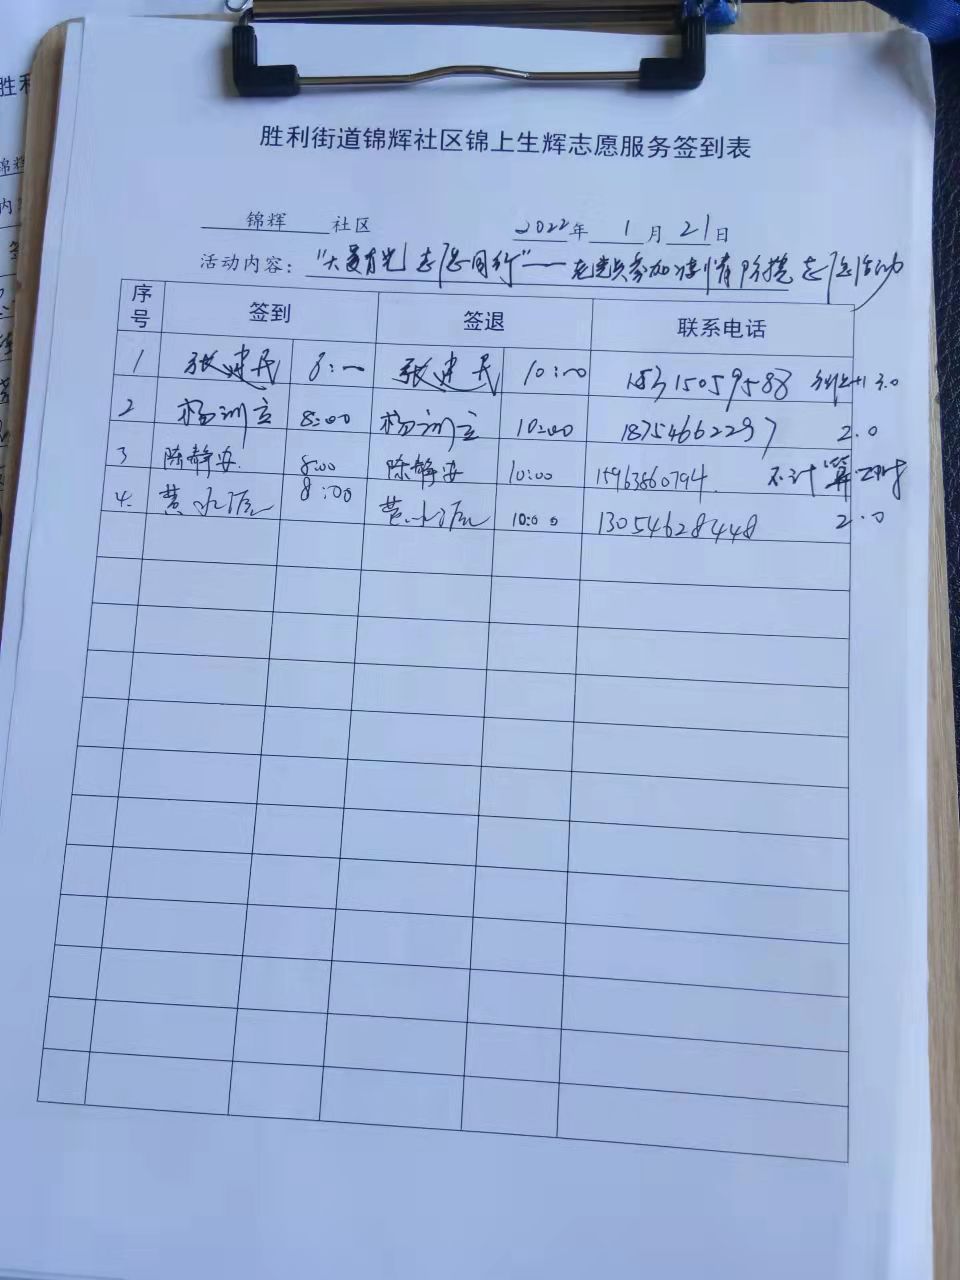 胜利街道锦辉社区锦上生辉志愿服务签到表
锦辉 社区 2022年 1 月 21 日
活动内容：“大爱有光 志愿同行”——老党员参加疫情防控志愿活动
序号 签到 签退 联系电话
1 张建民 8:00 张建民 10:00 15315059588 3.0
2 杨训立 8:00 杨训立 10:00 18754662297 2.0
3 陈静安 8:00 陈静安 10:00 15963860794 不计算工时
4 黄 8:00 黄 10:00 13054628448 2.0